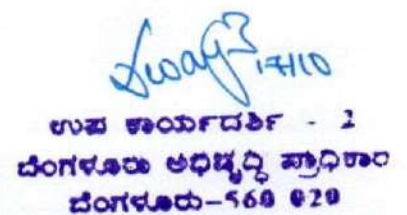 17/10
ಉಪ ಕಾರ್ಯದರ್ಶಿ - 2
ಬೆಂಗಳೂರು ಅಭಿವೃದ್ಧಿ ಪ್ರಾಧಿಕಾರ
ಬೆಂಗಳೂರು-560 020